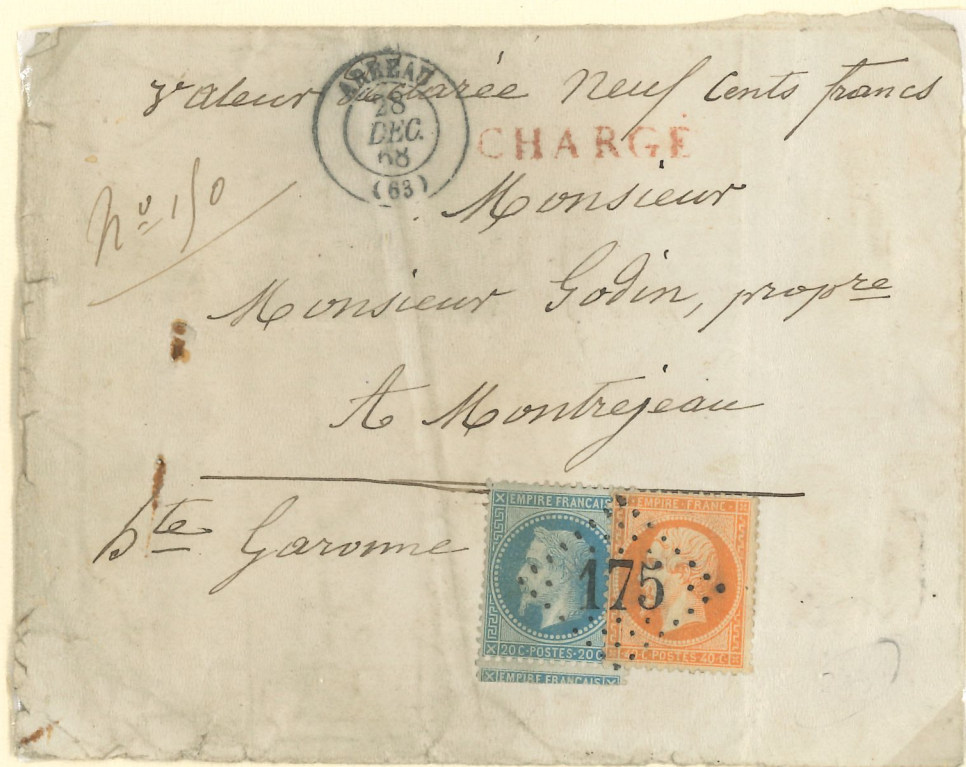 Valeur déclarée Neuf Cents francs
ARREAU
28
DEC.
68
(63)
CHARGÉ
No 150
Monsieur
Monsieur Godin, propre
A Montrejeau
hte Garonne
EMPIRE FRANÇAIS
20 C · POSTES · 20 C
EMPIRE FRANÇAIS
EMPIRE · FRANC ·
40 C · POSTES · 40 C
175